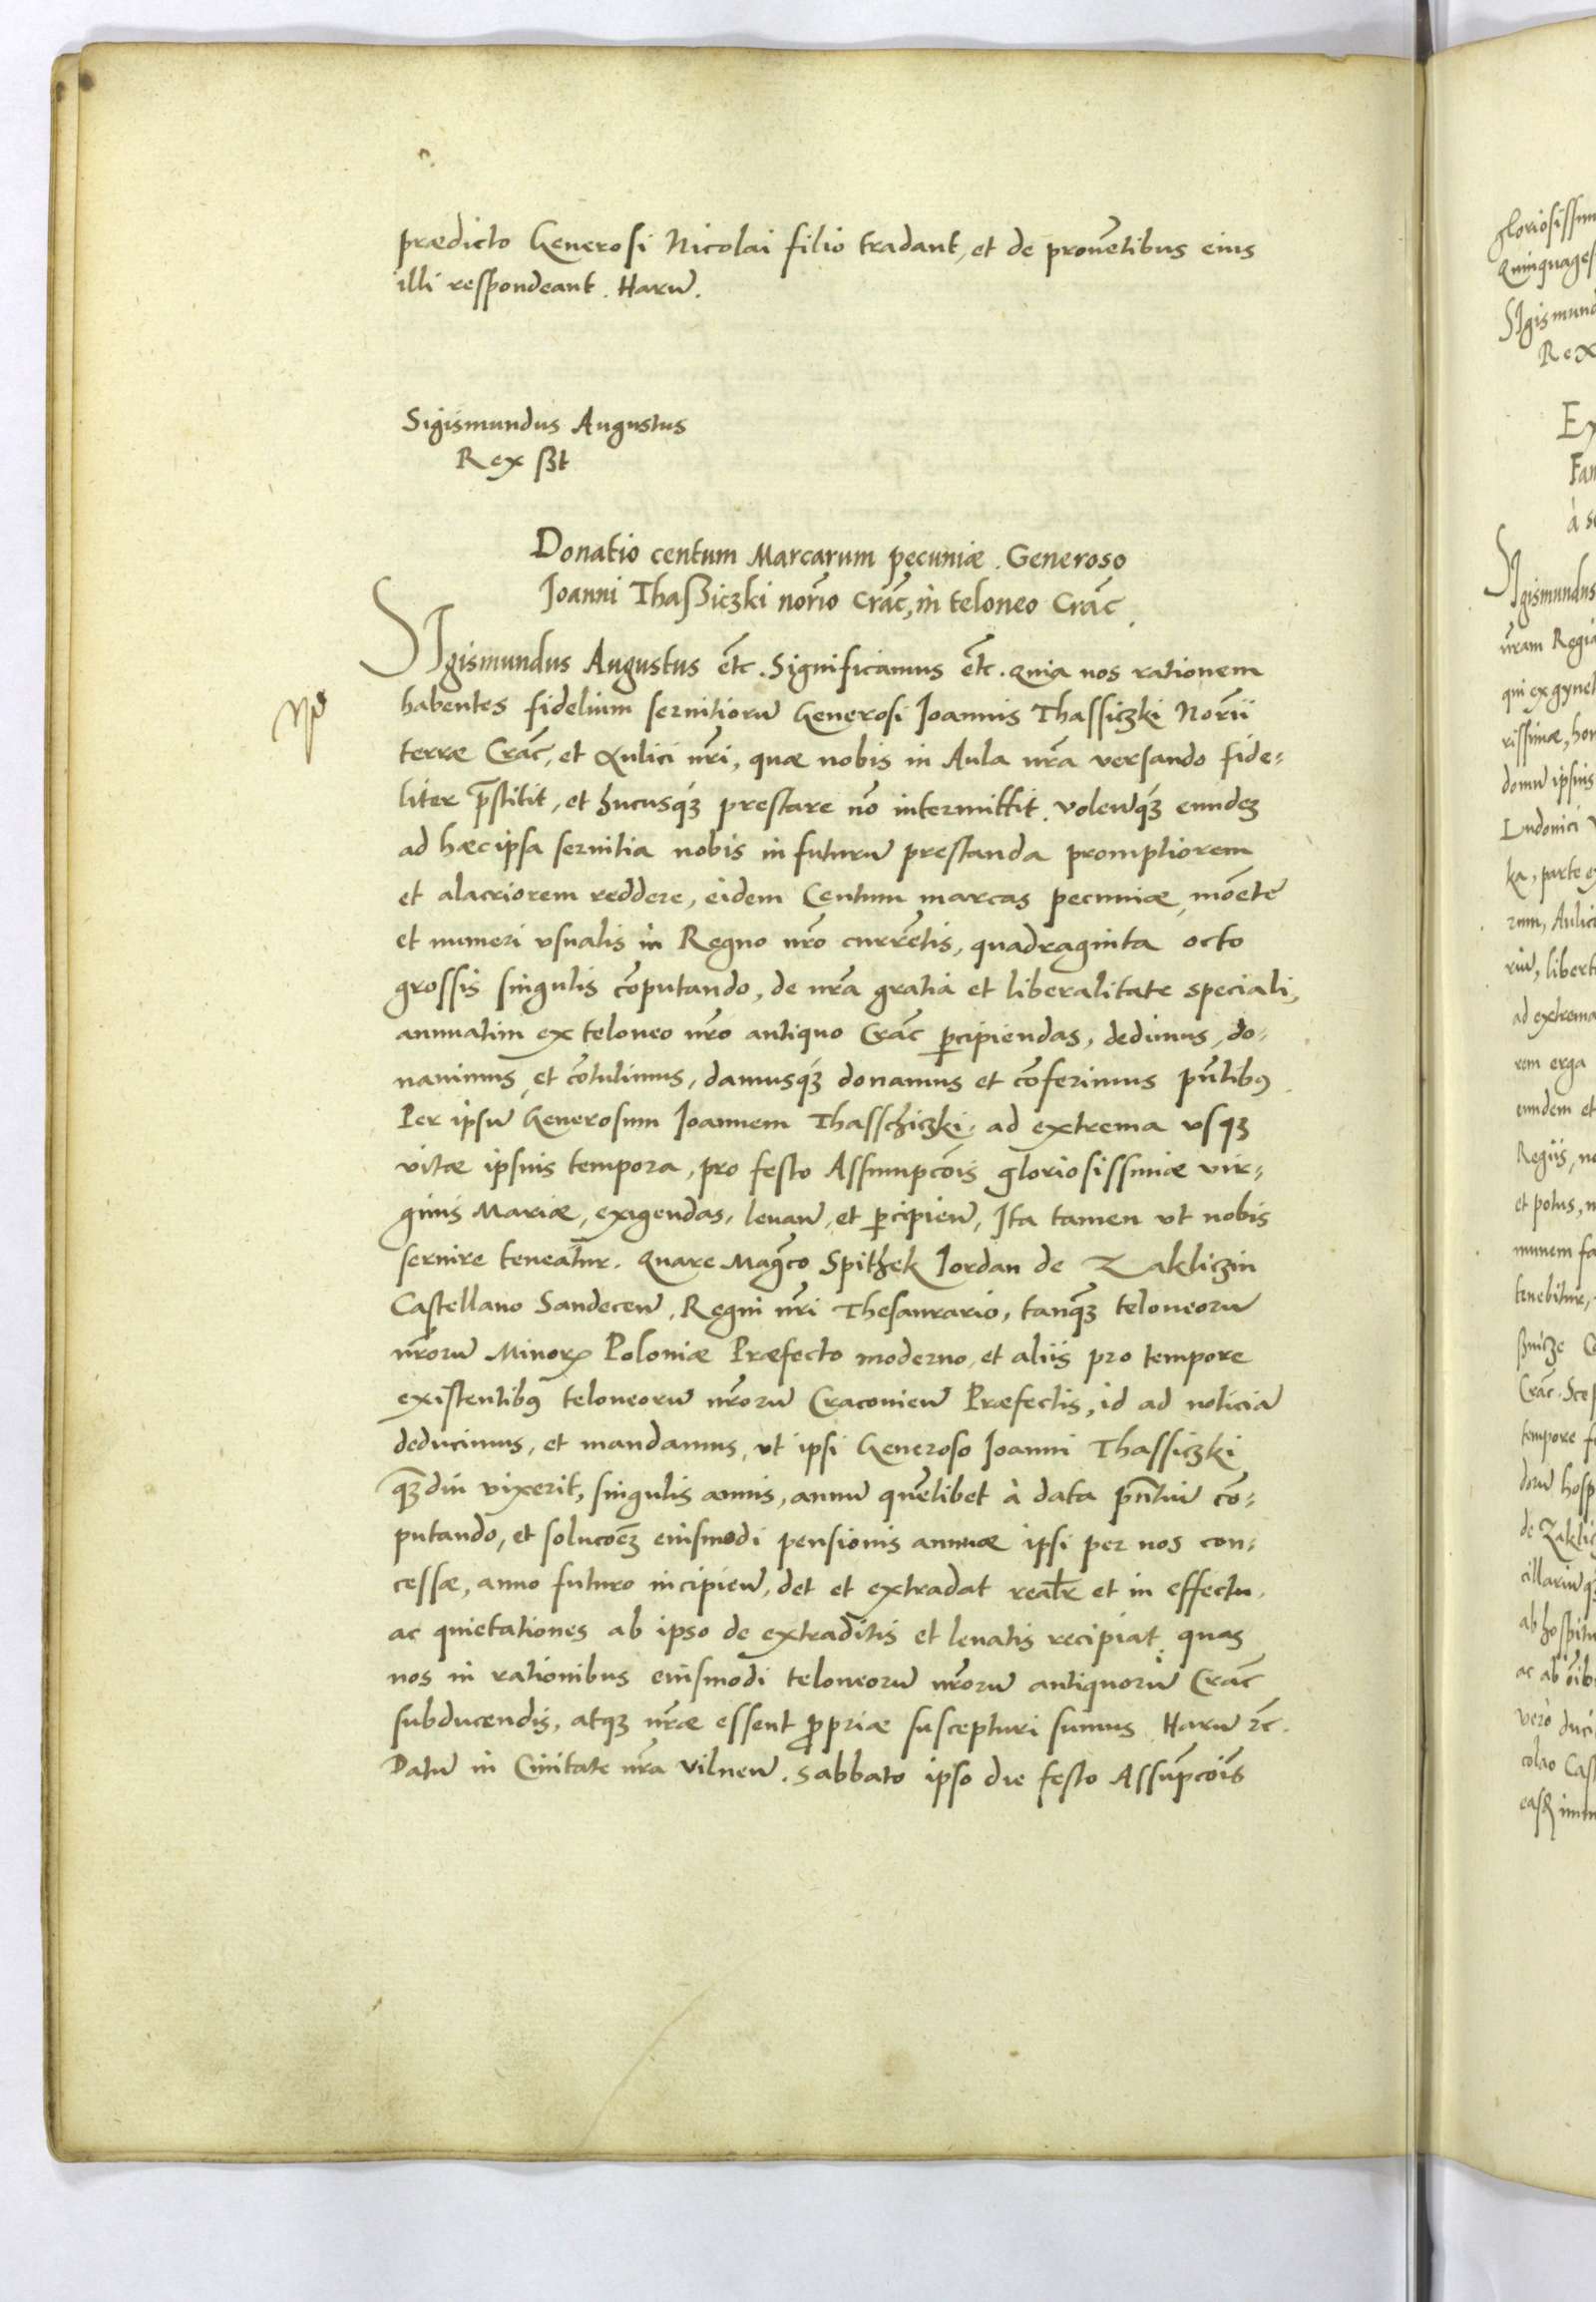 prædicto Generosi Nicolai filio tradant, et de prouẽtibus eius
illi respondeant. Harũ.
Sigismundus Augustus
Rex sßt
Donatio centum Marcarum pecuniæ. Generoso
Joanni Thaßiczki nor̃io Crac̃, in teloneo Crac̃.
SIgismundus Augustus etc̃. Significamus etc̃. Quia nos rationem
habentes fidelium seruitiorũ Generosi Joannis Thassiczki Nor̃ii
terræ Crac̃, et Aulici nr̃i, quæ nobis in Aula nr̃a versando fide-
liter p̃stitit, et hucusqꝫ prestare nõ intermittit. volen̄qꝫ eundeꝫ
ad hæc ipsa seruitia nobis in futurũ prestanda promptiorem
et alacriorem reddere, eidem Centum marcas pecuniæ, mõete
et numeri vsualis in Regno nr̃o currẽtis, quadraginta octo
grossis singulis cõputando, de nr̃a gratia et liberalitate speciali,
annuatim ex teloneo nr̃o antiquo Crac̃ ꝑcipiendas, dedimus, do-
nauimus, et cõtulimus, damusqꝫ donamus et cõferimus pñtibꝰ.
Per ipsũ Generosum Joannem Thasschiczki ad extrema vsqꝫ
vitæ ipsius tempora, pro festo Assumpcõis gloriosissimæ vir-
ginis Mariæ, exigendas, leuan̄, et ꝑcipien̄, Ita tamen vt nobis
seruire teneatur. Quare Mag̃co Spithek Jordan de Zakliczin
Castellano Sandecen̄, Regni nr̃i Thesaurario, tanqꝫ teloneorũ
nr̃orũ Minorꝝ Poloniæ Præfecto moderno, et aliis pro tempore
existentibꝰ teloneorũ nr̃orũ Craconien̄ Præfectis, id ad noticiã
deducimus, et mandamus, vt ipsi Generoso Joanni Thassiczki
qꝫdiu vixerit, singulis annis, annũ quẽlibet à data pñtiũ cõ-
putando, et solucõeꝫ eiusmodi pensionis annuæ ipsi per nos con-
cessæ, anno futuro incipien̄, det et extradat realr̃ et in effectu.
ac quietationes ab ipso de extraditis et leuatis recipiat, quas
nos in rationibus eiusmodi teloneorũ nr̃orũ antiquorũ Crac̃
subducendis, atqꝫ nr̃æ essent ꝓpriæ suscepturi sumus. Harũ ꝛc̃.
Datũ in Ciuitate nr̃a Vilnen̄. Sabbato ipso die festo Assũpcõis
gloriosissim
Quinquages
SIgismund
Rex
Ex
Fam
à s
SIgismundus
nr̃am Regia
qui ex gynet
rissimæ, hon
domũ ipsius
Ludouici
ka, parte ex
rum, Aulici
riũ, libert
ad extrema
rem erga
eundem et
Regiis, n
et potus, n
munem fa
tenebitur,
Crac̃. Sces
tempore f
dorũ hosp
de Zaklic
cillariũ q
ab hospitu
ac ab õibus
verò duci
colao Cast
easꝗ imm